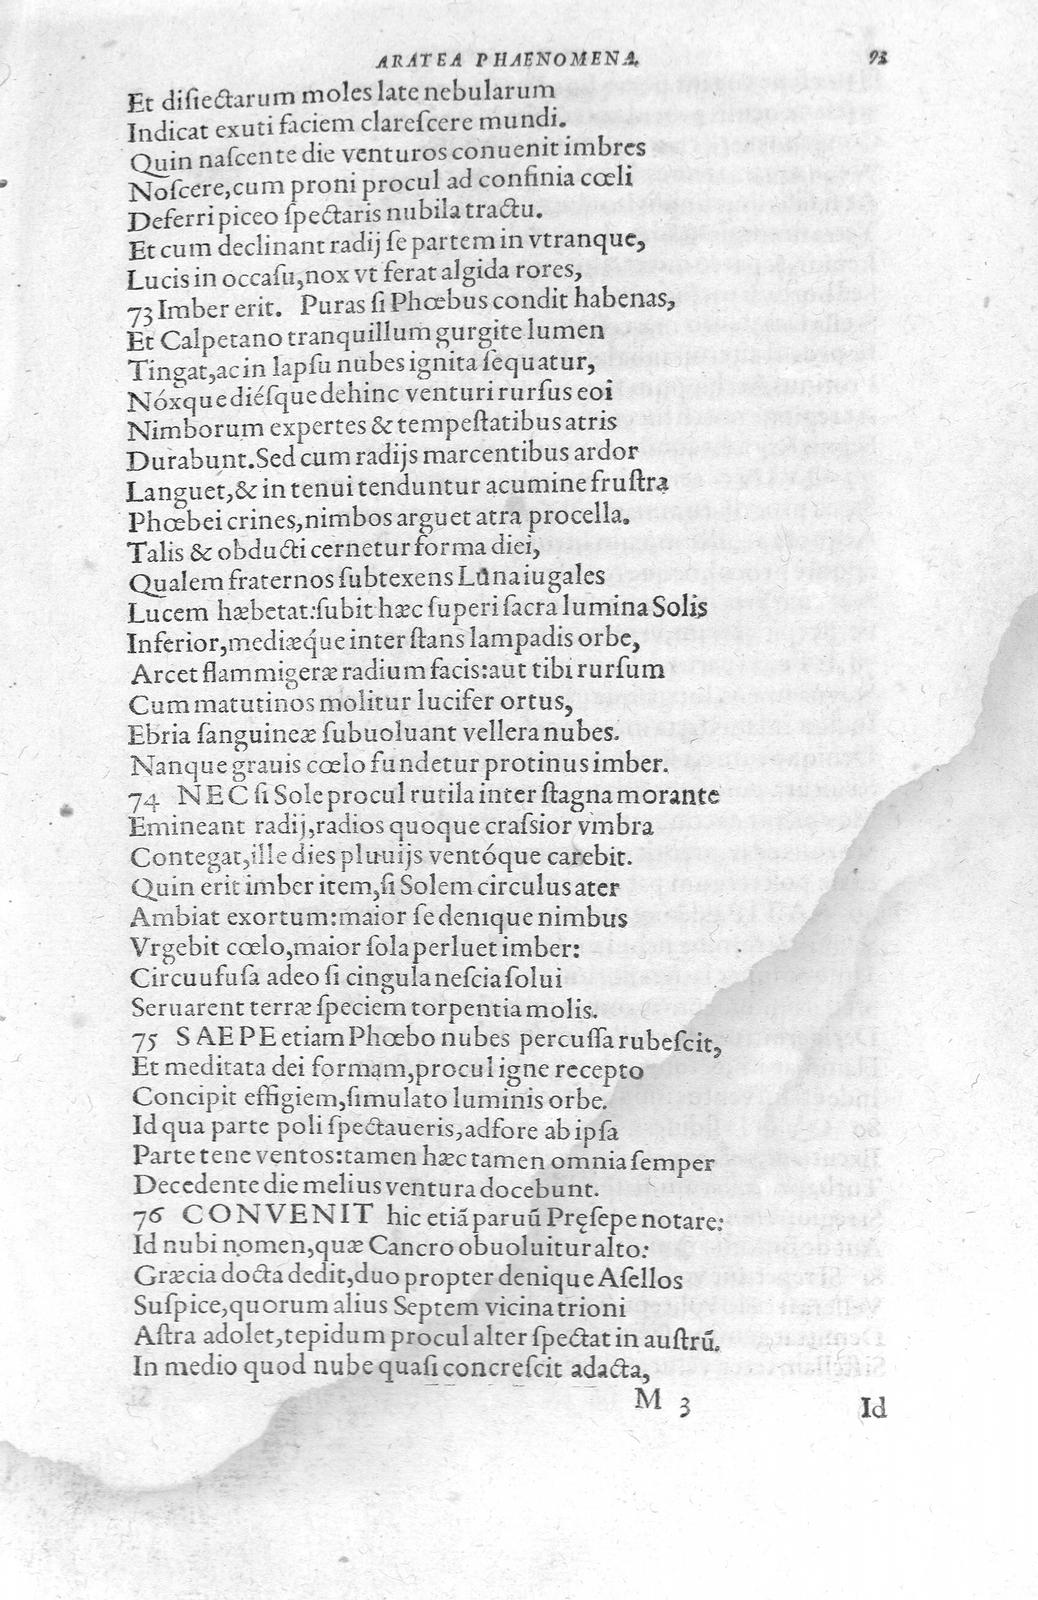 ARATEA PHAENOMENA. 93
Et disiectarum moles late nebularum
Indicat exuti faciem clarescere mundi.
Quin nascente die venturos conuenit imbres
Noscere, cum proni procul ad confinia cœli
Deferri piceo spectaris nubila tractu.
Et cum declinant radij se partem in vtranque,
Lucis in occasu, nox vt ferat algida rores,
73 Imber erit. Puras si Phœbus condit habenas,
Et Calpetano tranquillum gurgite lumen
Tingat, ac in lapsu nubes ignita sequatur,
Nóxque diésque dehinc venturi rursus eoi
Nimborum expertes & tempestatibus atris
Durabunt. Sed cum radijs marcentibus ardor
Languet, & in tenui tenduntur acumine frustra
Phœbei crines, nimbos arguet atra procella.
Talis & obducti cernetur forma diei,
Qualem fraternos subtexens Luna iugales
Lucem hæbetat: subit hæc superi sacra lumina Solis
Inferior, mediæq́ue inter stans lampadis orbe,
Arcet flammigeræ radium facis: aut tibi rursum
Cum matutinos molitur lucifer ortus,
Ebria sanguineæ subuoluant vellera nubes.
Nanque grauis cœlo fundetur protinus imber.
74 NEC si Sole procul rutila inter stagna morante
Emineant radij, radios quoque crassior vmbra
Contegat, ille dies pluuijs ventóque carebit.
Quin erit imber item, si Solem circulus ater
Ambiat exortum: maior se denique nimbus
Vrgebit cœlo, maior sola perluet imber:
Circuufusa adeo si cingula nescia solui
Seruarent terræ speciem torpentia molis.
75 SAEPE etiam Phœbo nubes percussa rubescit,
Et meditata dei formam, procul igne recepto
Concipit effigiem, simulato luminis orbe.
Id qua parte poli spectaueris, adfore ab ipsa
Parte tene ventos: tamen hæc tamen omnia semper
Decedente die melius ventura docebunt.
76 CONVENIT hic etiã paruũ Pręsepe notare:
Id nubi nomen, quæ Cancro obuoluitur alto:
Græcia docta dedit, duo propter denique Asellos
Suspice, quorum alius Septem vicina trioni
Astra adolet, tepidum procul alter spectat in austrũ.
In medio quod nube quasi concrescit adacta,
M 3 Id